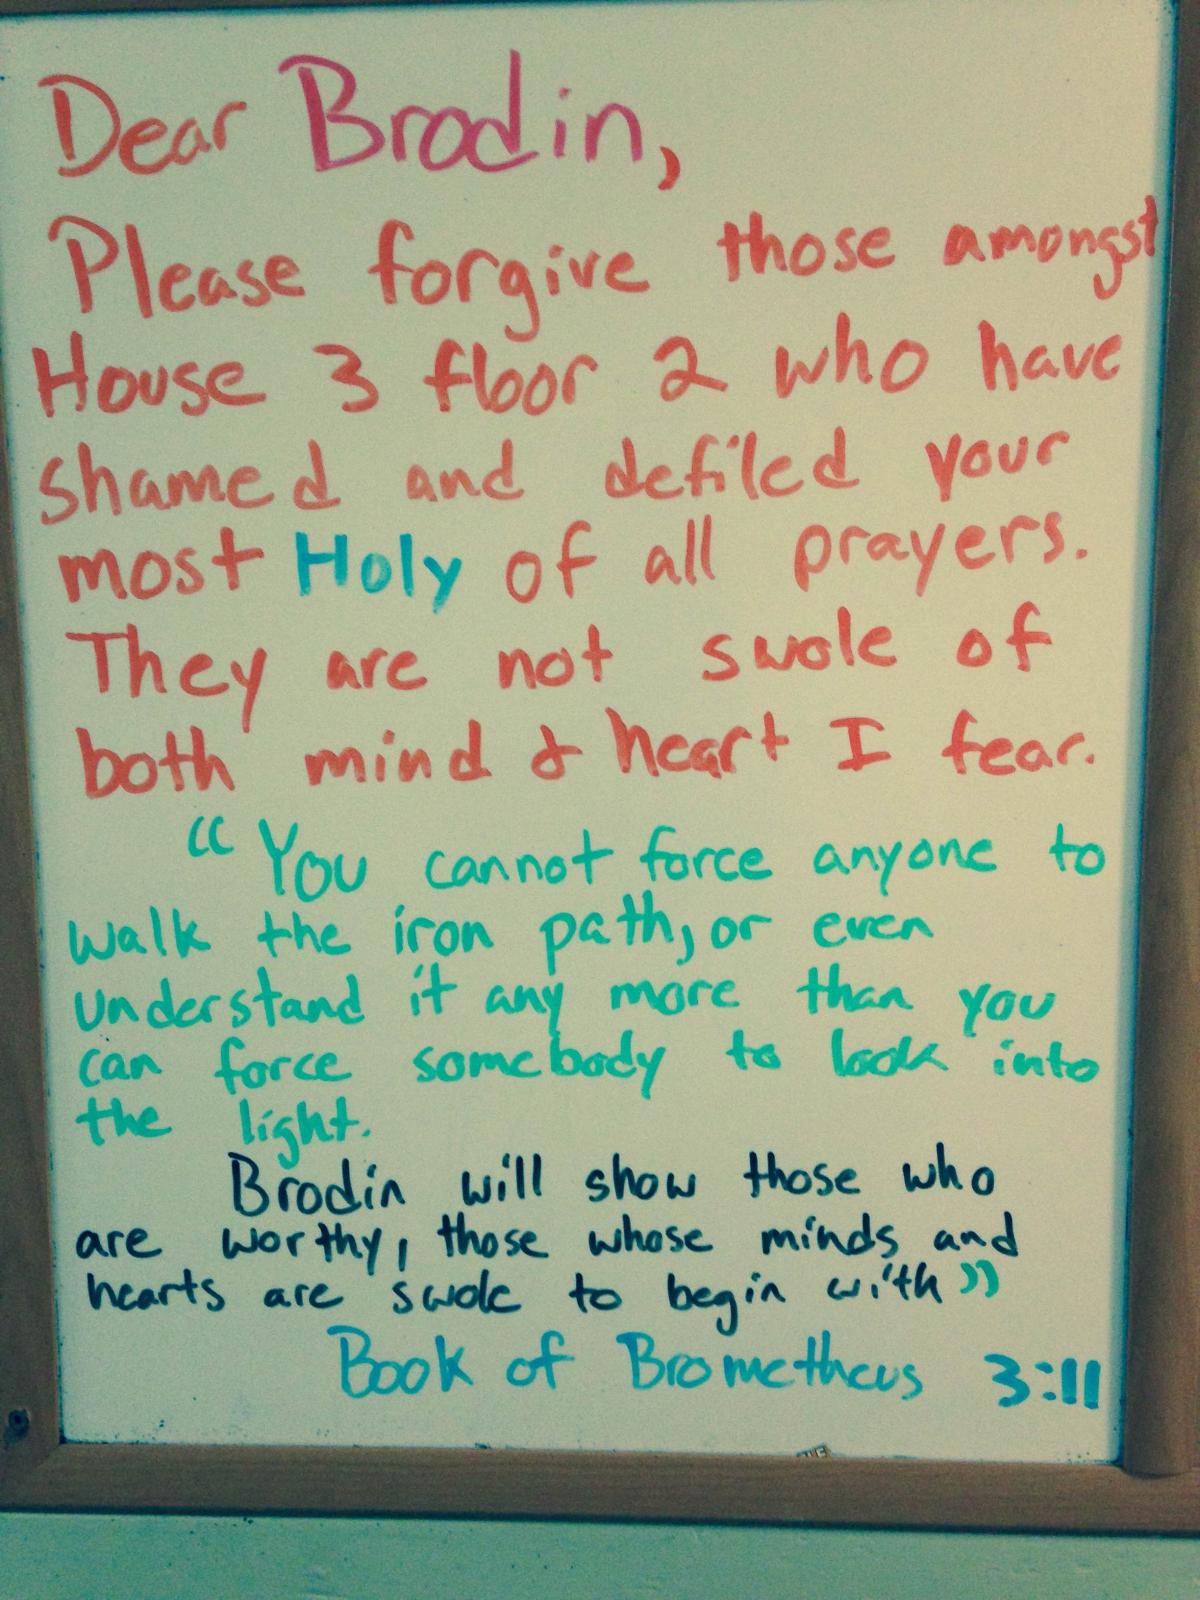 Dear Brodin,
Please forgive those amongst
House 3 floor 2 who have
shamed and defiled your
most Holy of all prayers.
They are not swole of
both mind & heart I fear.
"You cannot force anyone to
walk the iron path, or even
understand it any more than you
can force somebody to look into
the light.
Brodin will show those who
are worthy, those whose minds and
hearts are swole to begin with"
Book of Brometheus 3:11